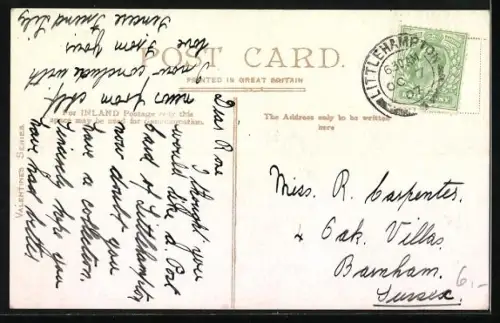 POST CARD.
PRINTED IN GREAT BRITAIN
For INLAND Postage only this
space may be used for Communication.
The Address only to be written
here
VALENTINES SERIES
LITTLEHAMPTON
6.30 AM
OC
07
Dear Rose
I thought you
would like a Post
Card of Littlehampton
now doubt you
have a collection.
Sincerely hope you
have had better
news from
I now conclude with
love From your
Sincere Friend Lily
Miss. R. Carpenter.
4 Oak Villas.
Barnham.
Sussex
6,-